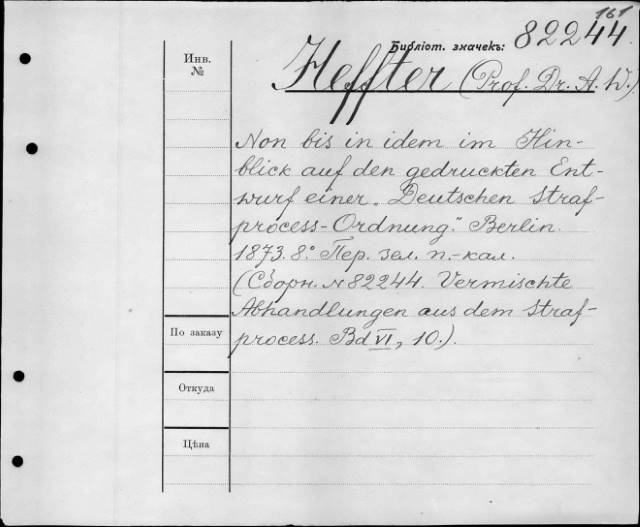 161
Библіот. значекъ: 82244
Инв. №
Heffter (Prof. Dr. A. W.)
Non bis in idem im Hin-
blick auf den gedruckten Ent-
wurf einer „Deutschen Straf-
process-Ordnung." Berlin.
1873. 8.° Пер. зел. п.-кал.
(Сборн. № 82244. Vermischte
Abhandlungen aus dem Straf-
process. Bd VI, 10.).
По заказу
Откуда
Цѣна